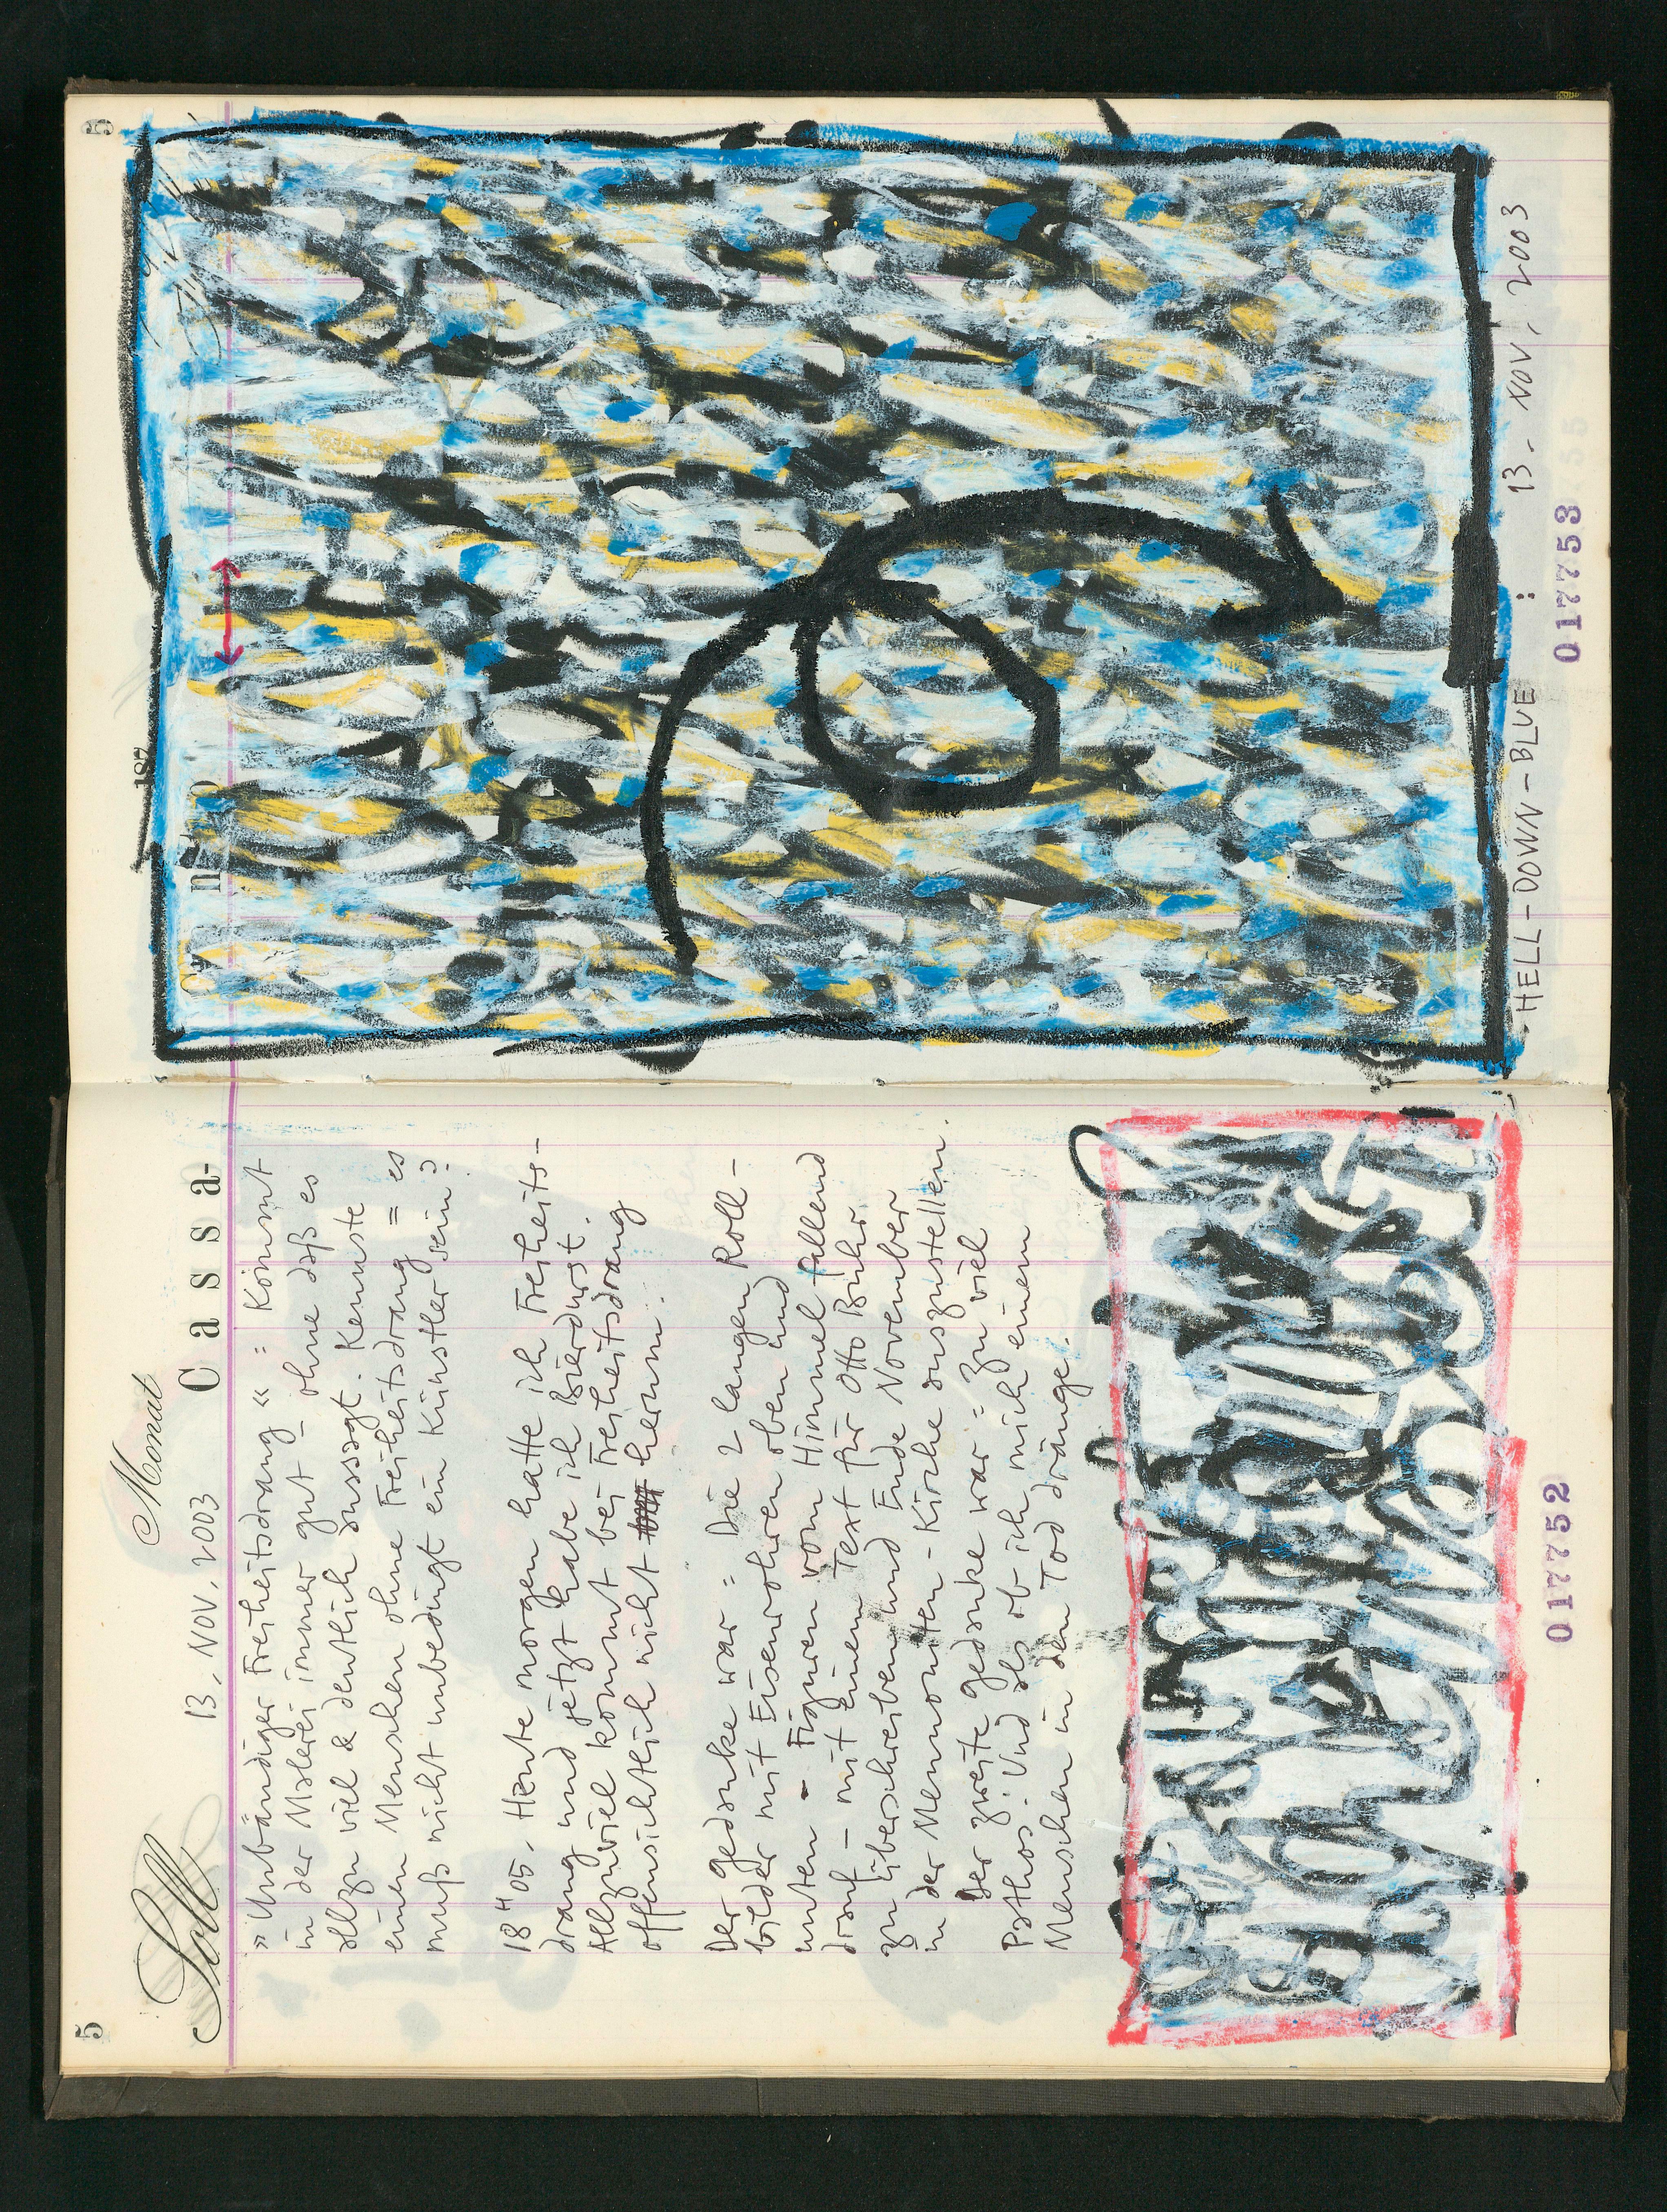 5
Soll
Monat
13. NOV. 2003
Cassa-
»Unbändiger Freiheitsdrang« = Kommt
in der Malerei immer gut – ohne daß es
allzu viel & deutlich aussagt. Kennste
einen Menschen ohne Freiheitsdrang = es
muß nicht unbedingt ein Künstler sein?
18H05. Heute morgen hatte ich Freiheits-
drang und jetzt habe ich Bierdurst.
Allzuviel kommt bei Freiheitsdrang
offensichtlich nicht herum.
Der gedanke war = Die 2 langen Roll-
bilder mit Eisenrohren oben und
unten - Figuren vom Himmel fallend
drauf - mit einem Text für Otto Buhr
zu überschreiben und Ende November
in der Mennoniten-Kirche auszustellen.
Der zweite gedanke war = zu viel
Pathos. Und als ob ich mich einem
Menschen in den Tod dränge.
017752
5
187
HELL-DOWN-BLUE : 13. NOV. 2003
017753